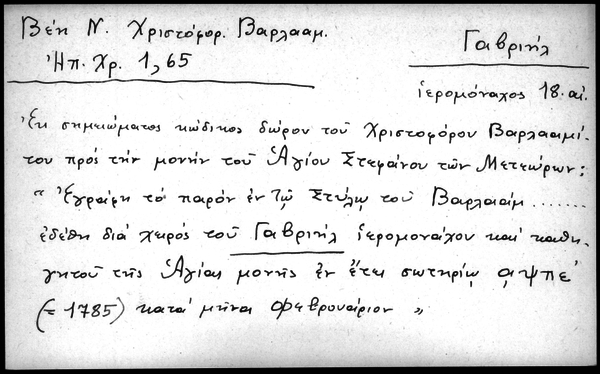 Βέη Ν. Χριστόφορ. Βαρλααμ.
Ἠπ. Χρ. 1, 65
Γαβριήλ
ἱερομόναχος 18. αἰ.
Ἐκ σημειώματος κώδικος δώρου τοῦ Χριστοφόρου Βαρλααμί-
του πρός τήν μονήν τοῦ Ἁγίου Στεφάνου τῶν Μετεώρων:
"Ἐγράφη τό παρόν ἐν τῷ Στύλῳ τοῦ Βαρλαάμ .......
ἐδέθη διά χειρός τοῦ Γαβριήλ ἱερομονάχου καί καθη-
γητοῦ τῆς Ἁγίας μονῆς ἐν ἔτει σωτηρίῳ ͵αψπε΄
(= 1785) κατά μῆνα Φεβρουάριον"